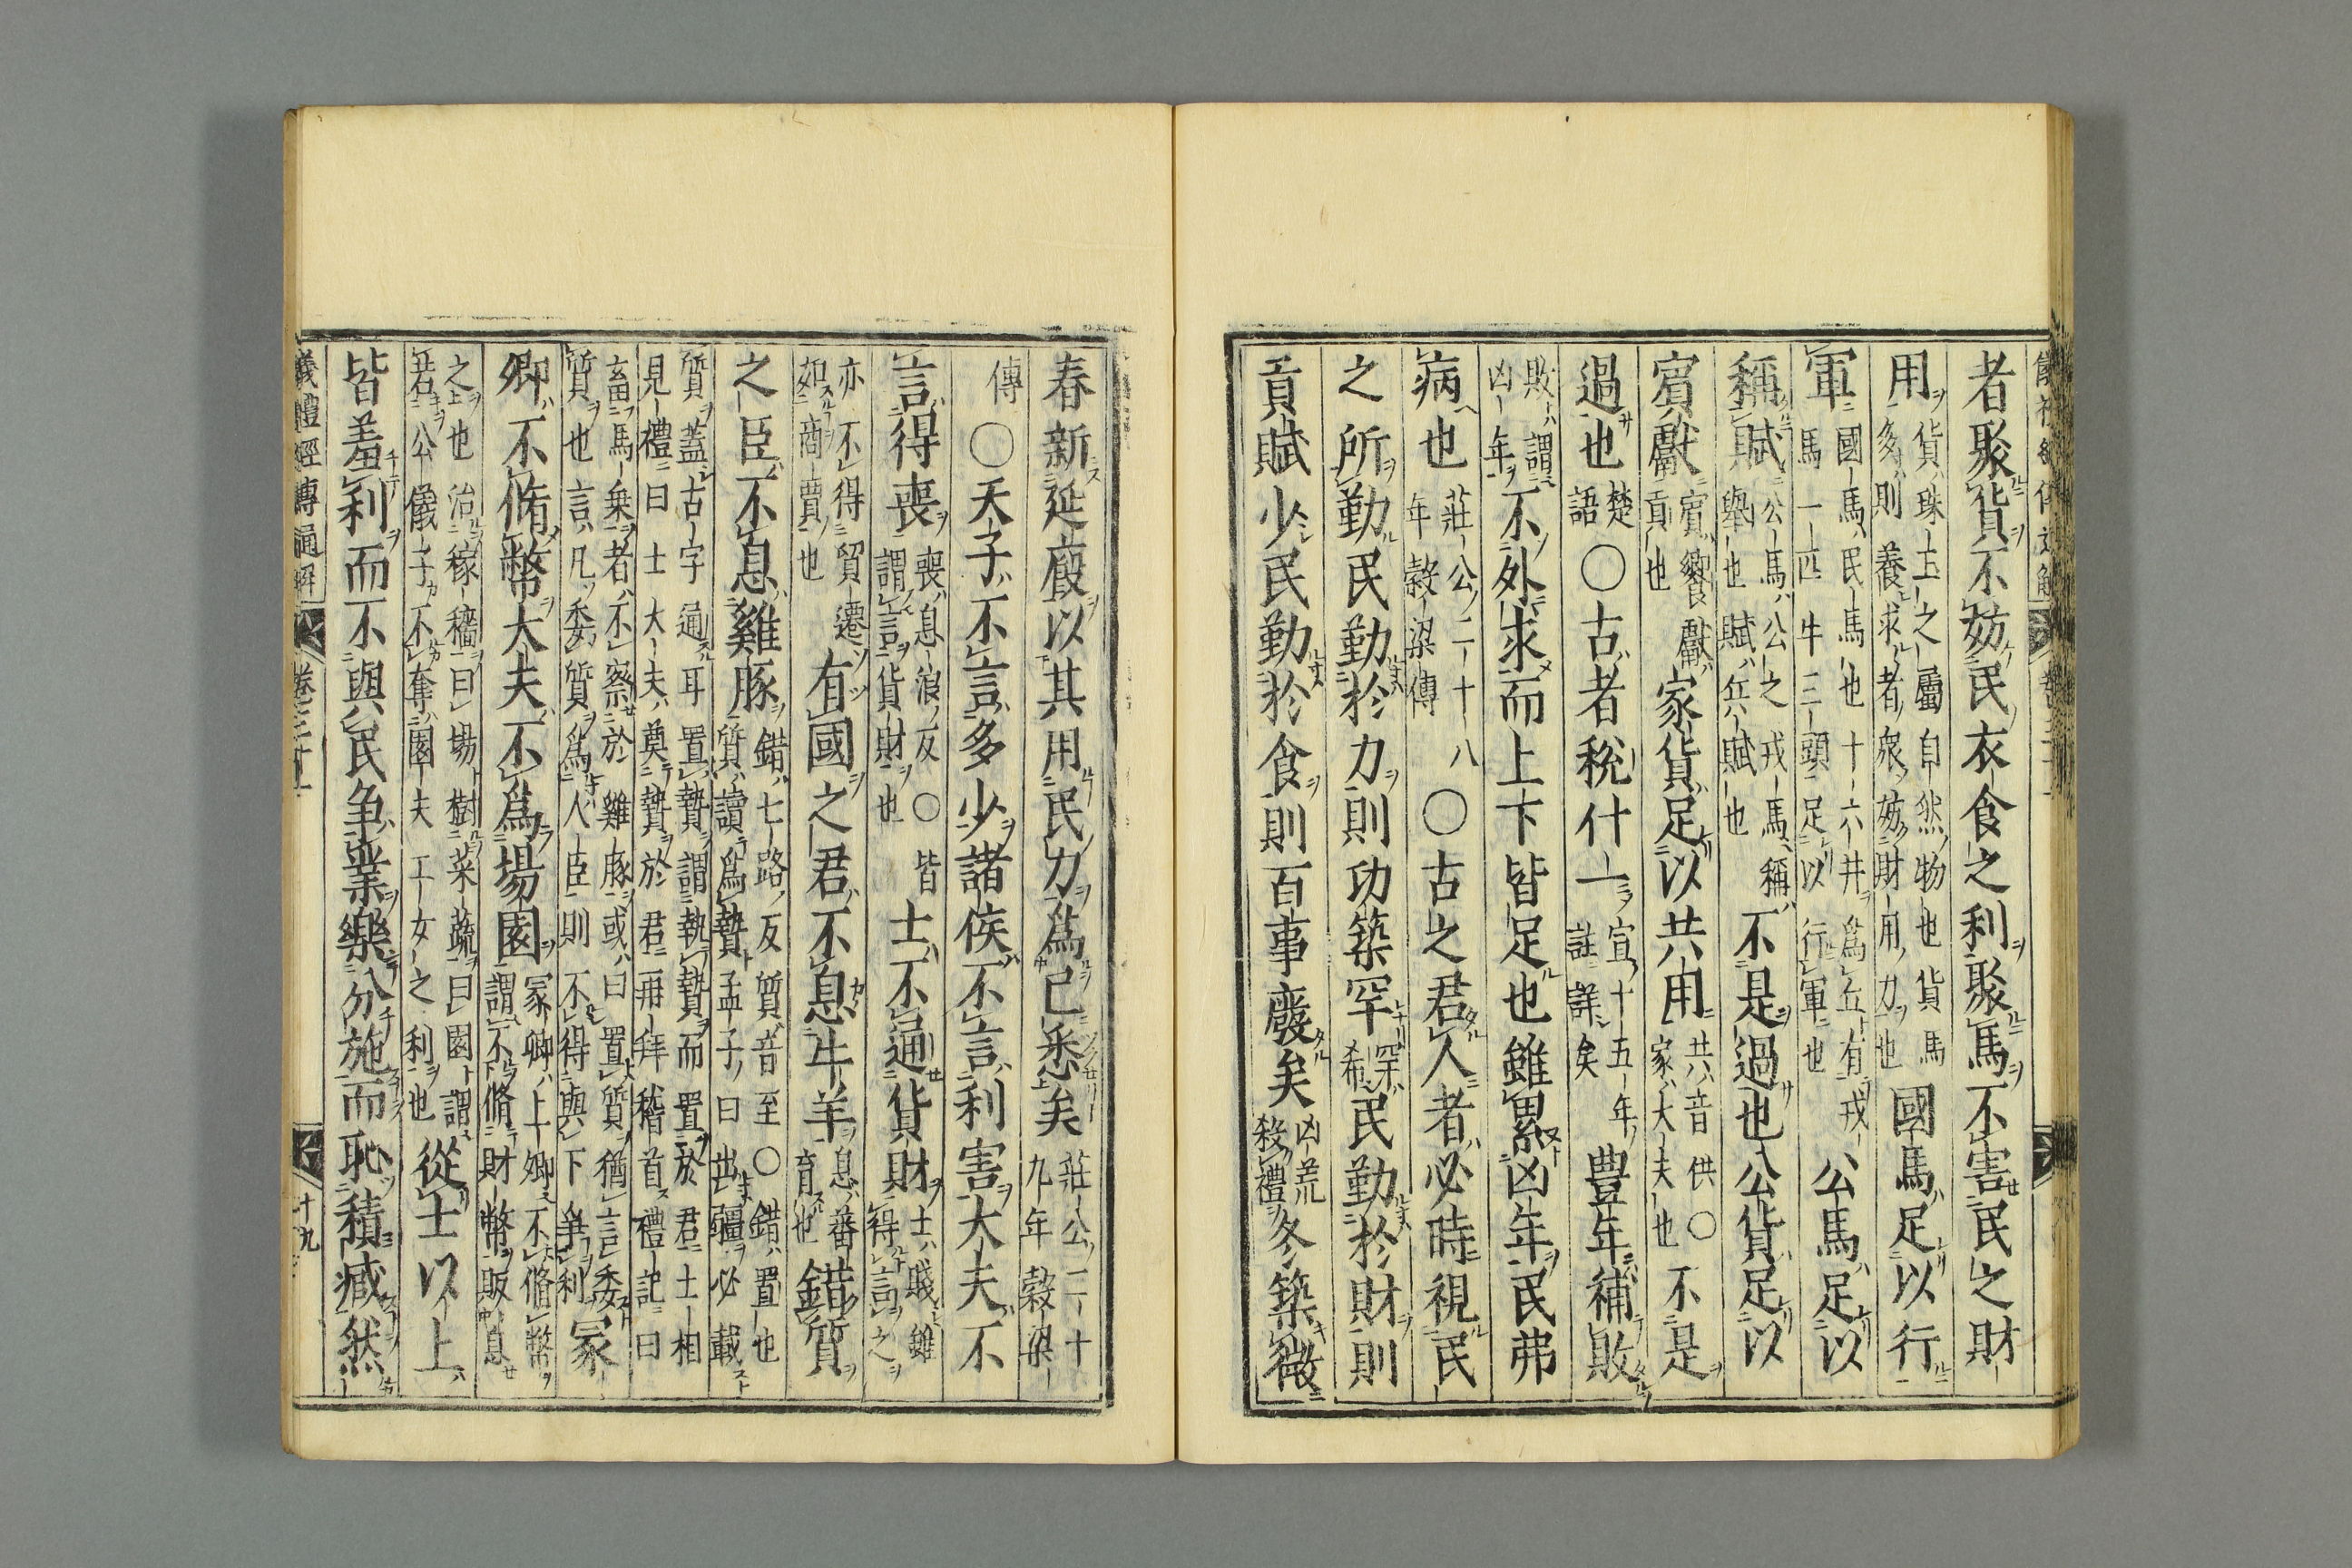 者聚貨不妨民衣食之利聚馬不害民之財
用貨珠玉之屬自然物也貨馬多則養求者衆妨財用力也國馬足以行
軍國馬民馬也十六井爲丘有戎馬一匹牛三頭足以行軍也公馬足以
稱賦公馬公之戎馬稱舉也賦兵賦也不是過也公貨足以
賓獻賓饗獻貢也家貨足以共用共音供〇家大夫也不是
過也楚語〇古者稅什一宣十五年註詳矣豊年補敗
敗謂凶年不外求而上下皆足也雖累凶年民弗
病也莊公二十八年穀梁傳〇古之君人者必時視民
之所勤民勤於力則功築罕罕希民勤於財則
貢賦少民勤於食則百事廢矣凶荒殺禮冬築微
春新延廄以其用民力爲已悉矣莊公二十九年穀梁
傳〇天子不言多少諸侯不言利害大夫不
言得喪喪息浪反〇皆謂言貨財也士不通貨財士賤雖得言之
亦不得貿遷如商賈也有國之君不息牛羊息蕃育也錯質
之臣不息雞豚錯七路反質音至〇錯置也質讀爲贄孟子曰出疆必載
質蓋古字通耳置贄謂執贄而置於君士相見禮曰士大夫奠贄於君再拜稽首禮記曰
畜馬乗者不察於雞豚或曰置質猶言委質也言凡委質爲人臣則不得與下爭利冢
卿不脩幣大夫不爲場園冢卿上卿不脩幣謂不脩財幣販息
之也治稼穡曰場樹菜蔬曰園謂若公儀子不奪園夫工女之利也從士以上
皆羞利而不與民争業樂分施而恥積臧然
儀禮經傳通解 卷三十一 十九